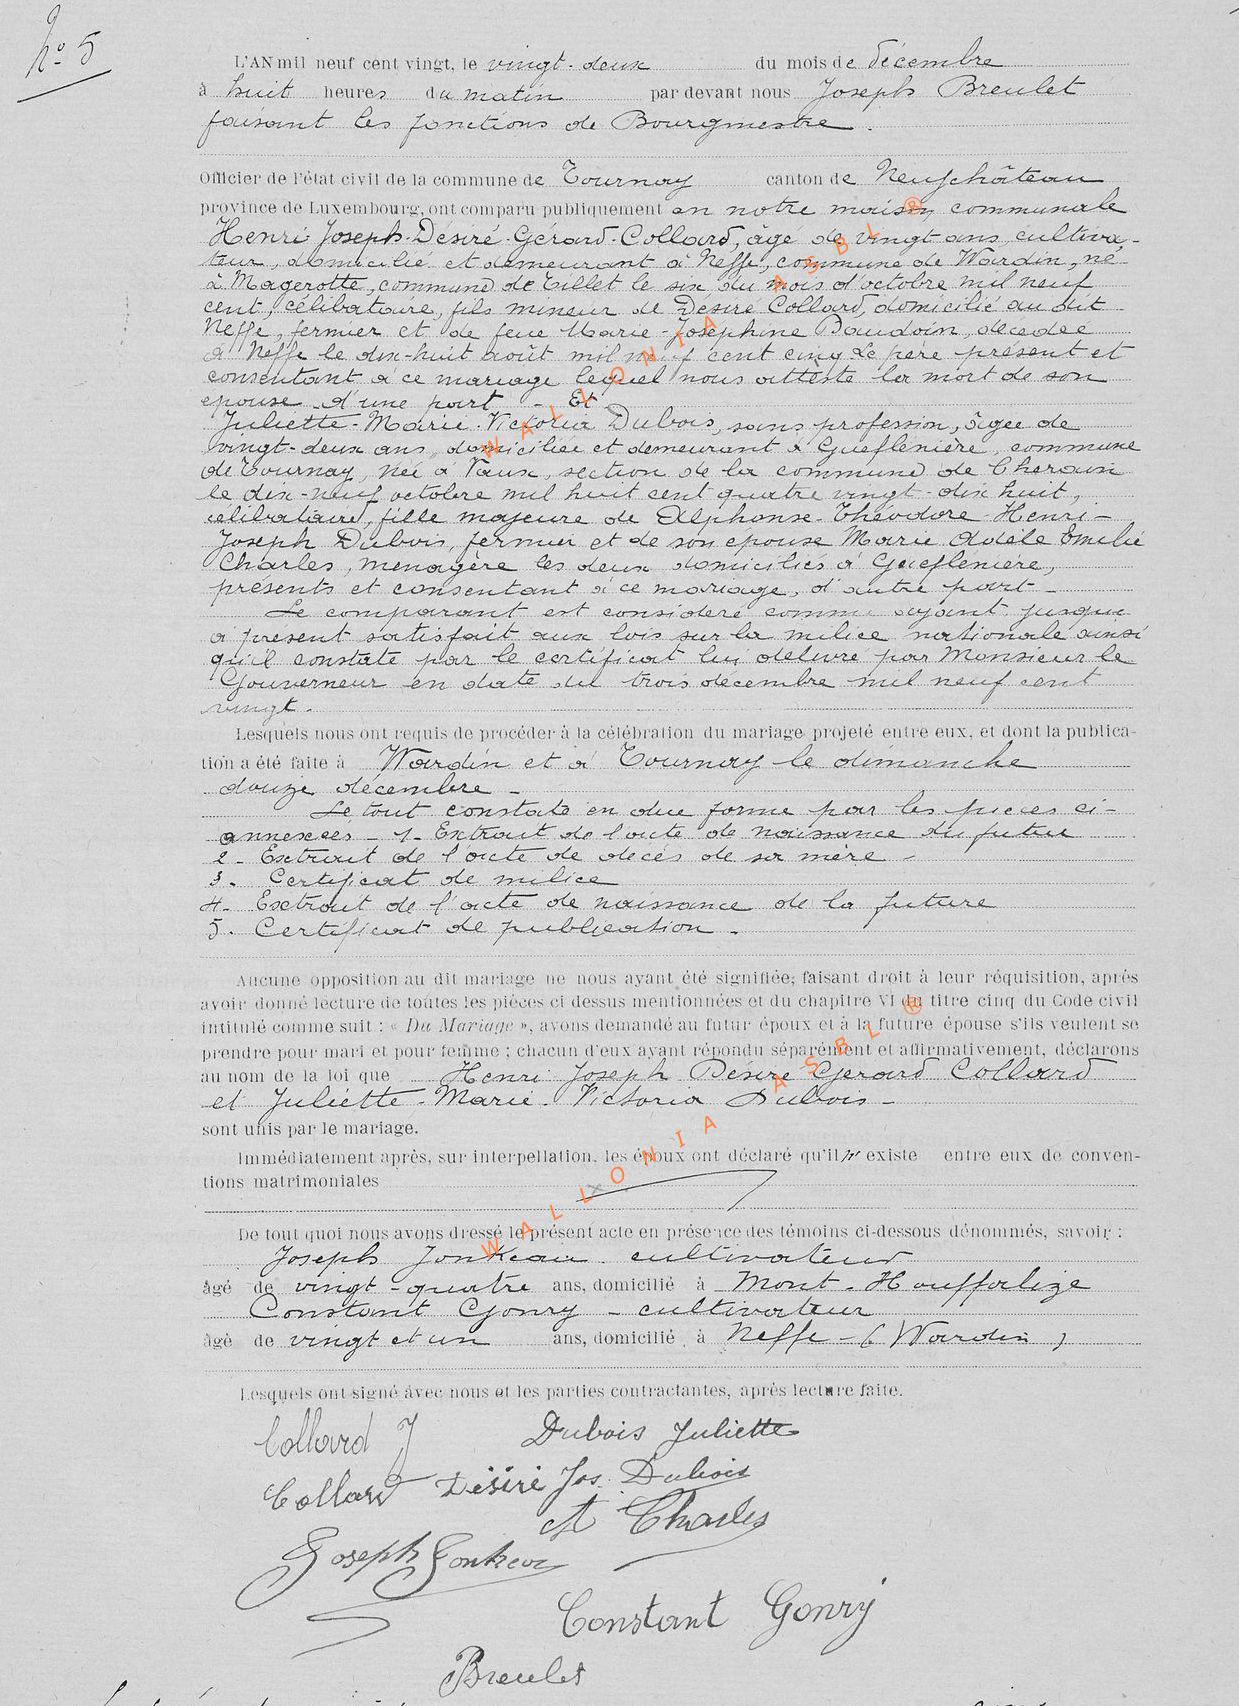 N° 5
L'AN mil neuf cent vingt, le vingt-deux du mois de décembre
à huit heures du matin par devant nous Joseph Breulet
faisant les fonctions de Bourgmestre.
Officier de l'état civil de la commune de Tournay canton de Neufchâteau
province de Luxembourg, ont comparu publiquement en notre maison communale
Henri-Joseph-Désiré-Gérard-Collard, âgé de vingt ans, cultiva-
teur, domicilié et demeurant à Neffe, commune de Wardin, né
à Magerotte, commune de Tillet le six du mois d'octobre mil neuf
cent, célibataire, fils mineur de Désiré Collard, domicilié au dit
Neffe, fermier et de feue Marie-Joséphine Baudoin, décédée
à Neffe le dix-huit août mil neuf cent cinq Le père présent et
consentant à ce mariage lequel nous atteste la mort de son
épouse d'une part - Et
Juliette-Marie-Victoria Dubois, sans profession, âgée de
vingt-deux ans, domiciliée et demeurant à Gueflenière, commune
de Tournay, née à Vaux, section de la commune de Cherain
le dix-neuf octobre mil huit cent quatre vingt-dix huit,
célibataire, fille majeure de Alphonse-Théodore-Henri-
Joseph Dubois, fermier et de son épouse Marie Adèle Emilie
Charles, ménagère les deux domiciliés à Gueflenière,
présents et consentant à ce mariage, d'autre part -
Le comparant est considéré comme ayant jusque
à présent satisfait aux lois sur la milice nationale ainsi
qu'il constate par le certificat lui délivré par Monsieur le
Gouverneur en date du trois décembre mil neuf cent
vingt.
Lesquels nous ont requis de procéder à la célébration du mariage projeté entre eux, et dont la publica-
tion a été faite à Wardin et à Tournay le dimanche
douze décembre -
Le tout constaté en due forme par les pièces ci-
annexées - 1- Extrait de l'acte de naissance du futur
2- Extrait de l'acte de décès de sa mère -
3. Certificat de milice
4- Extrait de l'acte de naissance de la future
5. Certificat de publication -
Aucune opposition au dit mariage ne nous ayant été signifiée; faisant droit à leur réquisition, après
avoir donné lecture de toutes les pièces ci dessus mentionnées et du chapitre VI du titre cinq du Code civil
intitulé comme suit : « Du Mariage », avons demandé au futur époux et à la future épouse s'ils veulent se
prendre pour mari et pour femme ; chacun d'eux ayant répondu séparément et affirmativement, déclarons
au nom de la loi que Henri Joseph Désiré Gérard Collard
et Juliette-Marie-Victoria Dubois -
sont unis par le mariage.
Immédiatement après, sur interpellation, les époux ont déclaré qu'il n' existe entre eux de conven-
tions matrimoniales
De tout quoi nous avons dressé le présent acte en présence des témoins ci-dessous dénommés, savoir :
Joseph Jonkeau cultivateur
âgé de vingt-quatre ans, domicilié à Mont-Houffalize
Constant Gonry - cultivateur
âgé de vingt et un ans, domicilié à Neffe - (Wardin)
Lesquels ont signé avec nous et les parties contractantes, après lecture faite.
Collard J Dubois Juliette
Collard Désiré Jos. Dubois
A Charles
Joseph Jonkeau
Constant Gonry
Breulet
WALLONIA ASBL ®
WALLONIA ASBL ®